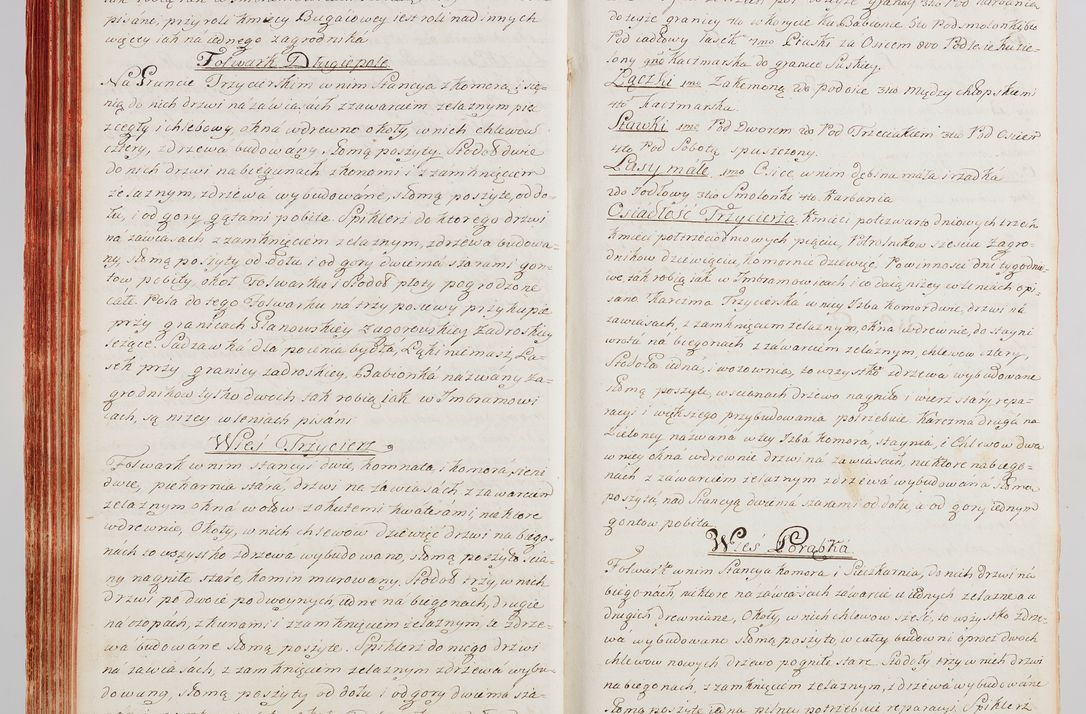 pisane, przy roli kmiecy Bugaiowey iest roli nad innych
więcey iak na iednego zagrodnika
Folwark Długiepole
Na Gruncie Trzycierskim w nim Stancya z komorą i sie-
nią do nich drzwi na zawiasach z zawarciem zelaznym piec
z cegły i chlebowy, okna w drewno okoły, w nich chlewów
cztery, z drzewa budowany, słomą poszyty. Stodoł dwie
do nich drzwi na biegunach z konomi i z zamknięciem
zelaznym, z drzewa wybudowane, słomą poszyte, od do-
łu, i od gory gątami pobite. Spiklerz do ktorego drzwi
na zawiasach z zamknięciem zelaznym, z drzewa budowa-
ny słomą poszyty od dołu i od gory dwiema szarami gon-
tow pobity, okoł Folwarku i Stodoł płoty pogrodzone
całe. Pola do tego Folwarku na trzy posiewy przykupie
przy granicach Janowskiey Zagorowskiey Zadroskiey
leżące. Sadzawka dla poienia bydła, Łąki niemasz, La-
sek przy granicy Zadroskiey, Babionka nazwany Za-
grodnikow tylko dwoch tak robią iak w Imbramowi
cach, są nizey w leniach pisani
Wieś Trzycierz
Folwark w nim stancyi dwie, komnata i komora sieni
dwie, piekarnia stara, drzwi na zawiasach z zawarciem
zelaznym okna w ołow z okutemi kwaterami, niektore
w drewnie, Okoły, w nich chlewow dziewięć drzwi na biego-
nach to wszystko z drzewa wybudowano, słomą poszyto scia-
ny nagniłe stare, komin murowany. Stodoł trzy, w nich
drzwi po dwoie podwoynych, iedne na biegonach, drugie
na czopach, z kunami i z zamknięciem zelaznym, te z drze-
wa budowane słomą poszyte. Spiklerz do niego drzwi
na zawiasach, z zamknięciem zelaznym z drzewa wybu-
dowany, słomą poszyty od dołu i od gory dwiema sza-
do teyże granicy
Pod iadłowy lasek 7mo Piaski za Osiem 8vo Podlesie
gno Kaczmarska do granice Suskiey.
Łączki 1mo Zakemoną 2do podoie 3tio między chłopskiemi
4to Kaczmarska.
Stawki 1mo Pod Dworem 2do Pod Trzeciakiem 3tio Pod Osiem
4to Pod Sobotą spuszczony.
Lasy małe, 1mo Osice w nim dębina mała i rzadka
2do Jodłowy 3tio Smolonki 4to Karbania
Osiadłość Trzycierza kmieci poczwara dniowych trzech
kmieci potrzeciodniowych pięciu, Polrolnikow szesciu Zagro-
dnikow dziewięciu, komornic dziewięć. Powinności dni tygodnio-
we tak robią iak w Imbramowicach i co daią nizey w leniach opi-
sano. Karczma Trzycierska w niey Izba komor dwie, drzwi na
zawiasach, z zamknięciem zelaznym, okna w drewnie, do stayni
wrota na biegonach z zawarciem zelaznym, chlewow cztery,
Stodoła iedna, i wozownia, to wszystko z drzewa wybudowane
słomą poszyte, w scianach drzewo nagniłe i wierz stary repa-
racyi i większego przybudowania potrzebuie Karczma druga na
Zieloney nazwana w tey Izba komora, staynia, i Chlewow dwa
w niey okna w drewnie drzwi na zawiasach, niektore na biego-
nach z zawarciem zelaznym z drzewa wybudowana słomą
poszyta, nad stancyą dwiema szarami od dołu, a od gory iednym
gontow pobita
Wieś Porąbka
Folwark w nim stancya komora i Sieczkarnia, do nich drzwi na
biegonach, niektore na zawiasach zawarcie u iednych zelazne, a u
drugich drewniane, Okoły, w nich chlewow sześć, to wszystko z drze-
wa wybudowano słomą poszyto, w całey budowni oprocz dwoch
chlewow nowych drzewo pogniłe stare. Stodoły trzy w nich drzwi
na biegonach, z zamknięciem zelaznym, z drzewa wybudowane
słomą poszyte iedna pilney potrzebuie reparacyi. Spiklerz